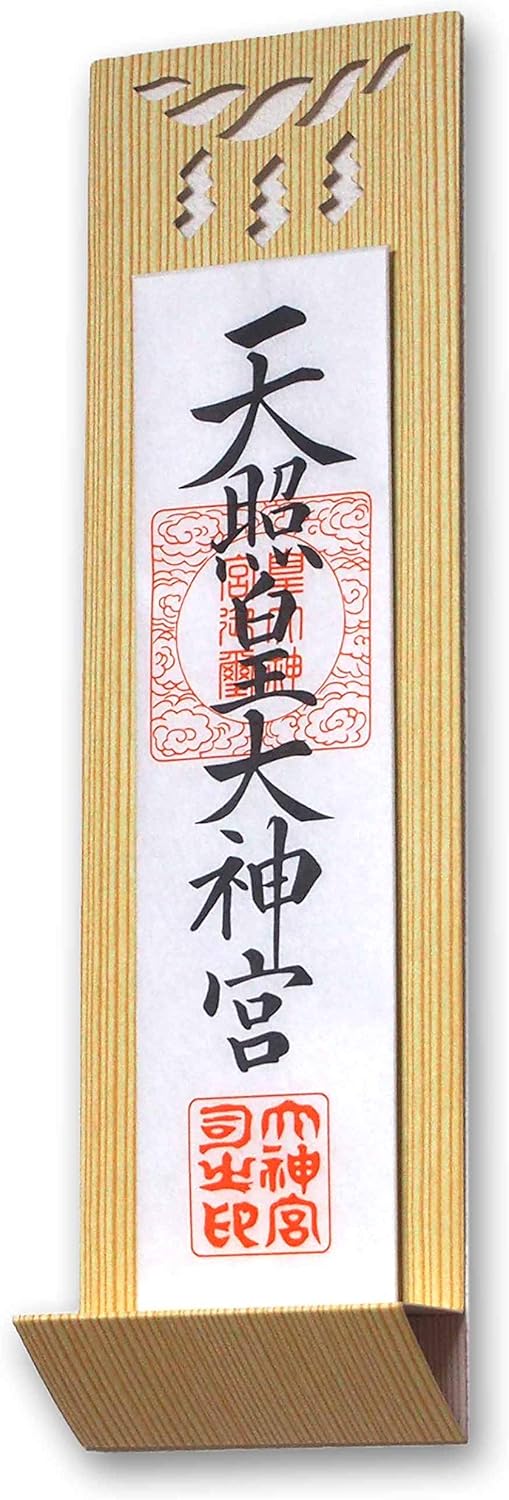 天照皇大神宮
皇大神
宮御璽
大神宮
司之印